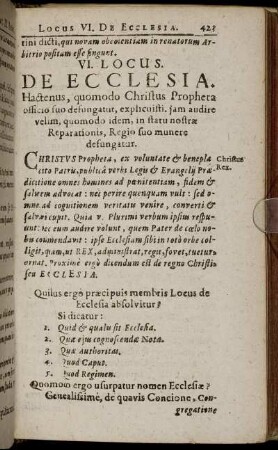 LOCUS VI. DE ECCLESIA. 423
tini dicti, qui novam obedientiam in renatorum Ar-
bitrio positam esse fingunt.
VI. LOCUS.
DE ECCLESIA.
Hactenus, quomodo Christus Propheta
officio suo defungatur, explicuisti. jam audire
velim, quomodo idem, in statu nostræ
Reparationis, Regio suo munere
defungatur.
CHRISTVS Propheta, ex voluntate & benepla
cito Patris, publicâ verbi Legis & Evangelij Præ-
dicatione omnes homines ad pœnitentiam, fidem &
salutem advocat: nec perire quenquam vult: sed o-
mnes ad cognitionem veritatis venire, converti &
salvari cupit. Quia v. Plurimi verbum ipsum respu-
unt: nec eum audire volunt, quem Pater de cœlo no-
bis commendavit: ipse Ecclesiam sibi in toto orbe col-
ligit, quam, ut REX, administrat, regit, fovet, tuetur,
ornat. Proximè ergò dicendum est de regno Christi:
seu ECCLESIA.
Christus
Rex.
Quibus ergo præcipuis membris Locus de
Ecclesia absolvitur?
Si dicatur:
1. Quid & qualis sit Ecclesia.
2. Quæ ejus cognoscendæ Nota.
3. Quæ Authoritas.
4. Quod Caput.
5. Quod Regimen.
Quomodo ergo usurpatur nomen Ecclesiæ?
Generalissimè, de quavis Concione, Con-
gregatione